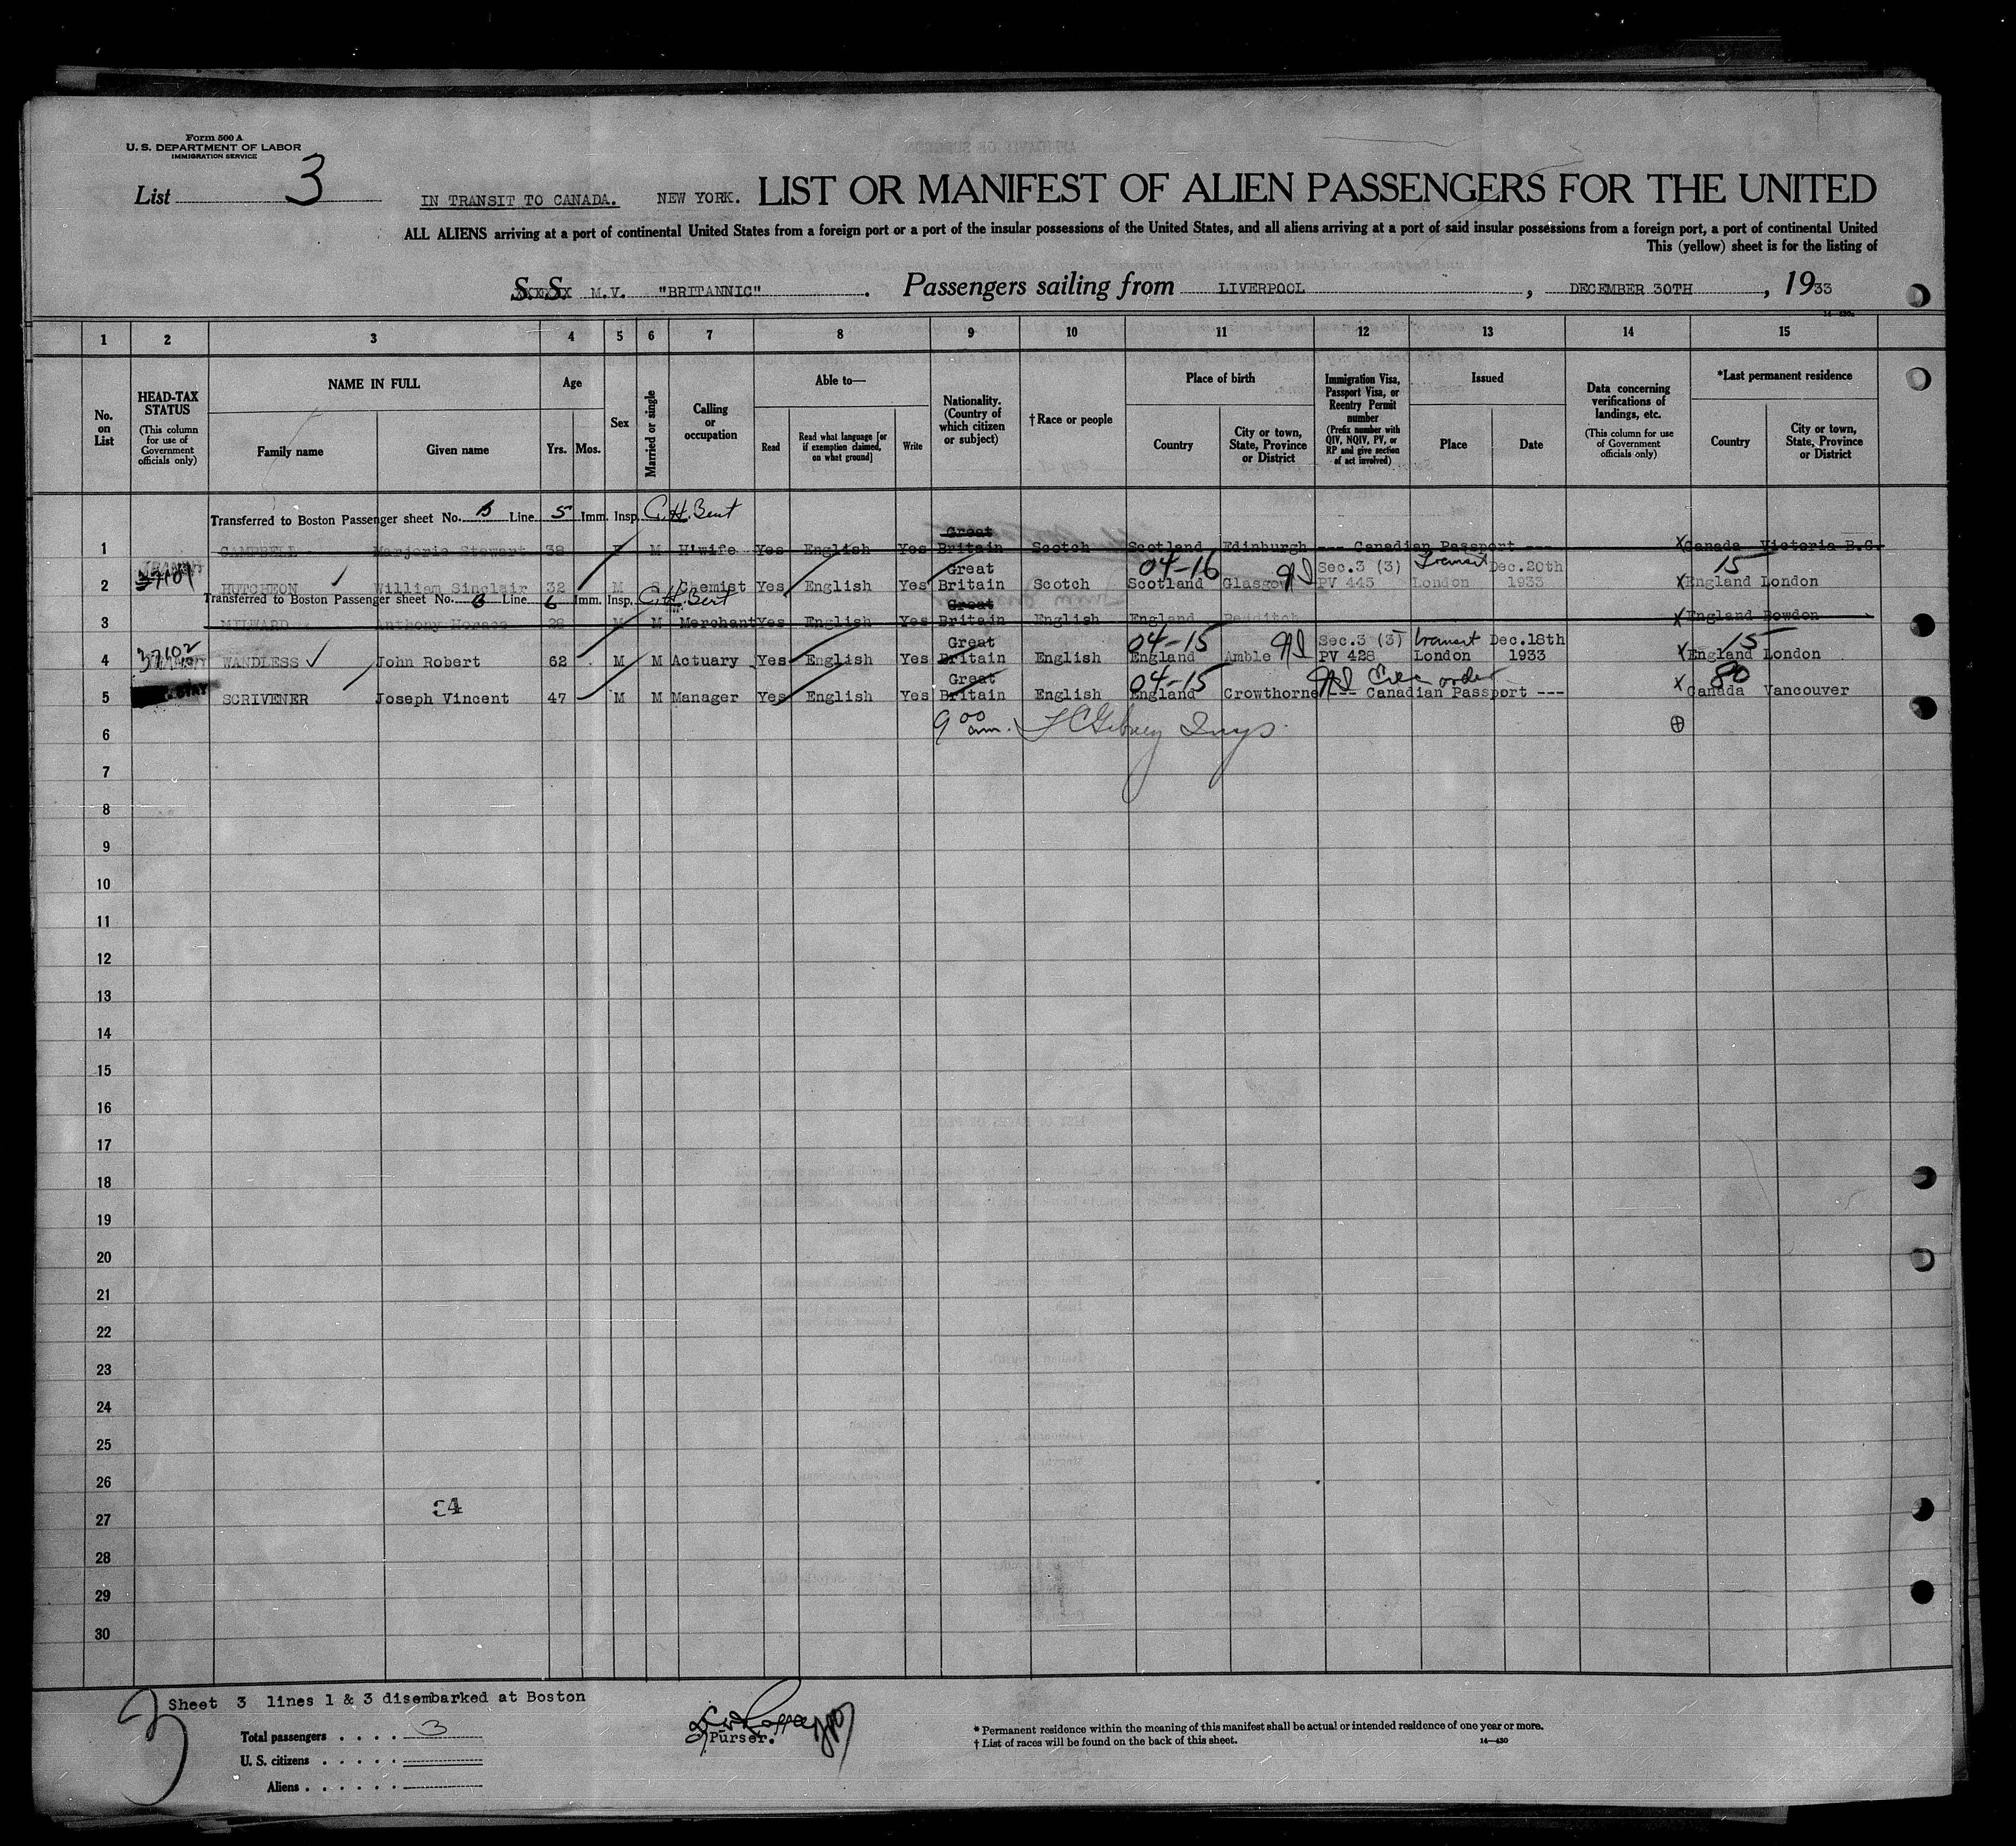 Form 500 A
U. S. DEPARTMENT OF LABOR
IMMIGRATION SERVICE
List 3
IN TRANSIT TO CANADA. NEW YORK. LIST OR MANIFEST OF ALIEN PASSENGERS FOR THE UNITED
ALL ALIENS arriving at a port of continental United States from a foreign port or a port of the insular possessions of the United States, and all aliens arriving at a port of said insular possessions from a foreign port, a port of continental United
This (yellow) sheet is for the listing of
S. S. M.V. "BRITANNIC" . Passengers sailing from LIVERPOOL , DECEMBER 30TH , 1933
1 2 3 4 5 6 7 8 9 10 11 12 13 14 15
No. on List
HEAD-TAX STATUS (This column for use of Government officials only)
NAME IN FULL
Family name
Given name
Age
Yrs. Mos.
Sex
Married or single
Calling or occupation
Able to—
Read
Read what language [or if exemption claimed, on what ground]
Write
Nationality. (Country of which citizen or subject)
† Race or people
Place of birth
Country
City or town, State, Province or District
Immigration Visa, Passport Visa, or Reentry Permit number (Prefix number with QIV, NQIV, PV, or RP and give section of act involved)
Issued
Place
Date
Data concerning verifications of landings, etc. (This column for use of Government officials only)
*Last permanent residence
Country
City or town, State, Province or District
14—430
Transferred to Boston Passenger sheet No. B Line 5 Imm. Insp. C.H. Bent
1 CAMPBELL Marjorie Stewart 38 F M H'wife Yes English Yes Great Britain Scotch Scotland Edinburgh --- Canadian Passport --- X Canada Victoria B.C.
2 37101 HUTCHEON William Sinclair 32 M S Chemist Yes English Yes Great Britain Scotch Scotland 04-16 Glasgow Sec.3 (3) PV 445 Transit London Dec.20th 1933 X 15 England London
Transferred to Boston Passenger sheet No. B Line 6 Imm. Insp. C.H. Bent
3 MILWARD Anthony Horace 28 M M Merchant Yes English Yes Great Britain English England Redditch X England Bowdon
4 37102 WANDLESS John Robert 62 M M Actuary Yes English Yes Great Britain English England 04-15 Amble Sec.3 (3) PV 428 transit London Dec.18th 1933 X 15 England London
5 STAY SCRIVENER Joseph Vincent 47 M M Manager Yes English Yes Great Britain English England 04-15 Crowthorne --- Canadian Passport --- order X 80 Canada Vancouver
6 9 00 am.
7
8
9
10
11
12
13
14
15
16
17
18
19
20
21
22
23
24
25
26
34
27
28
29
30
Sheet 3 lines 1 & 3 disembarked at Boston
3
Total passengers . . . . 3
U. S. citizens . . . .
Aliens . . . . . .
Purser.
* Permanent residence within the meaning of this manifest shall be actual or intended residence of one year or more.
† List of races will be found on the back of this sheet.
14—430